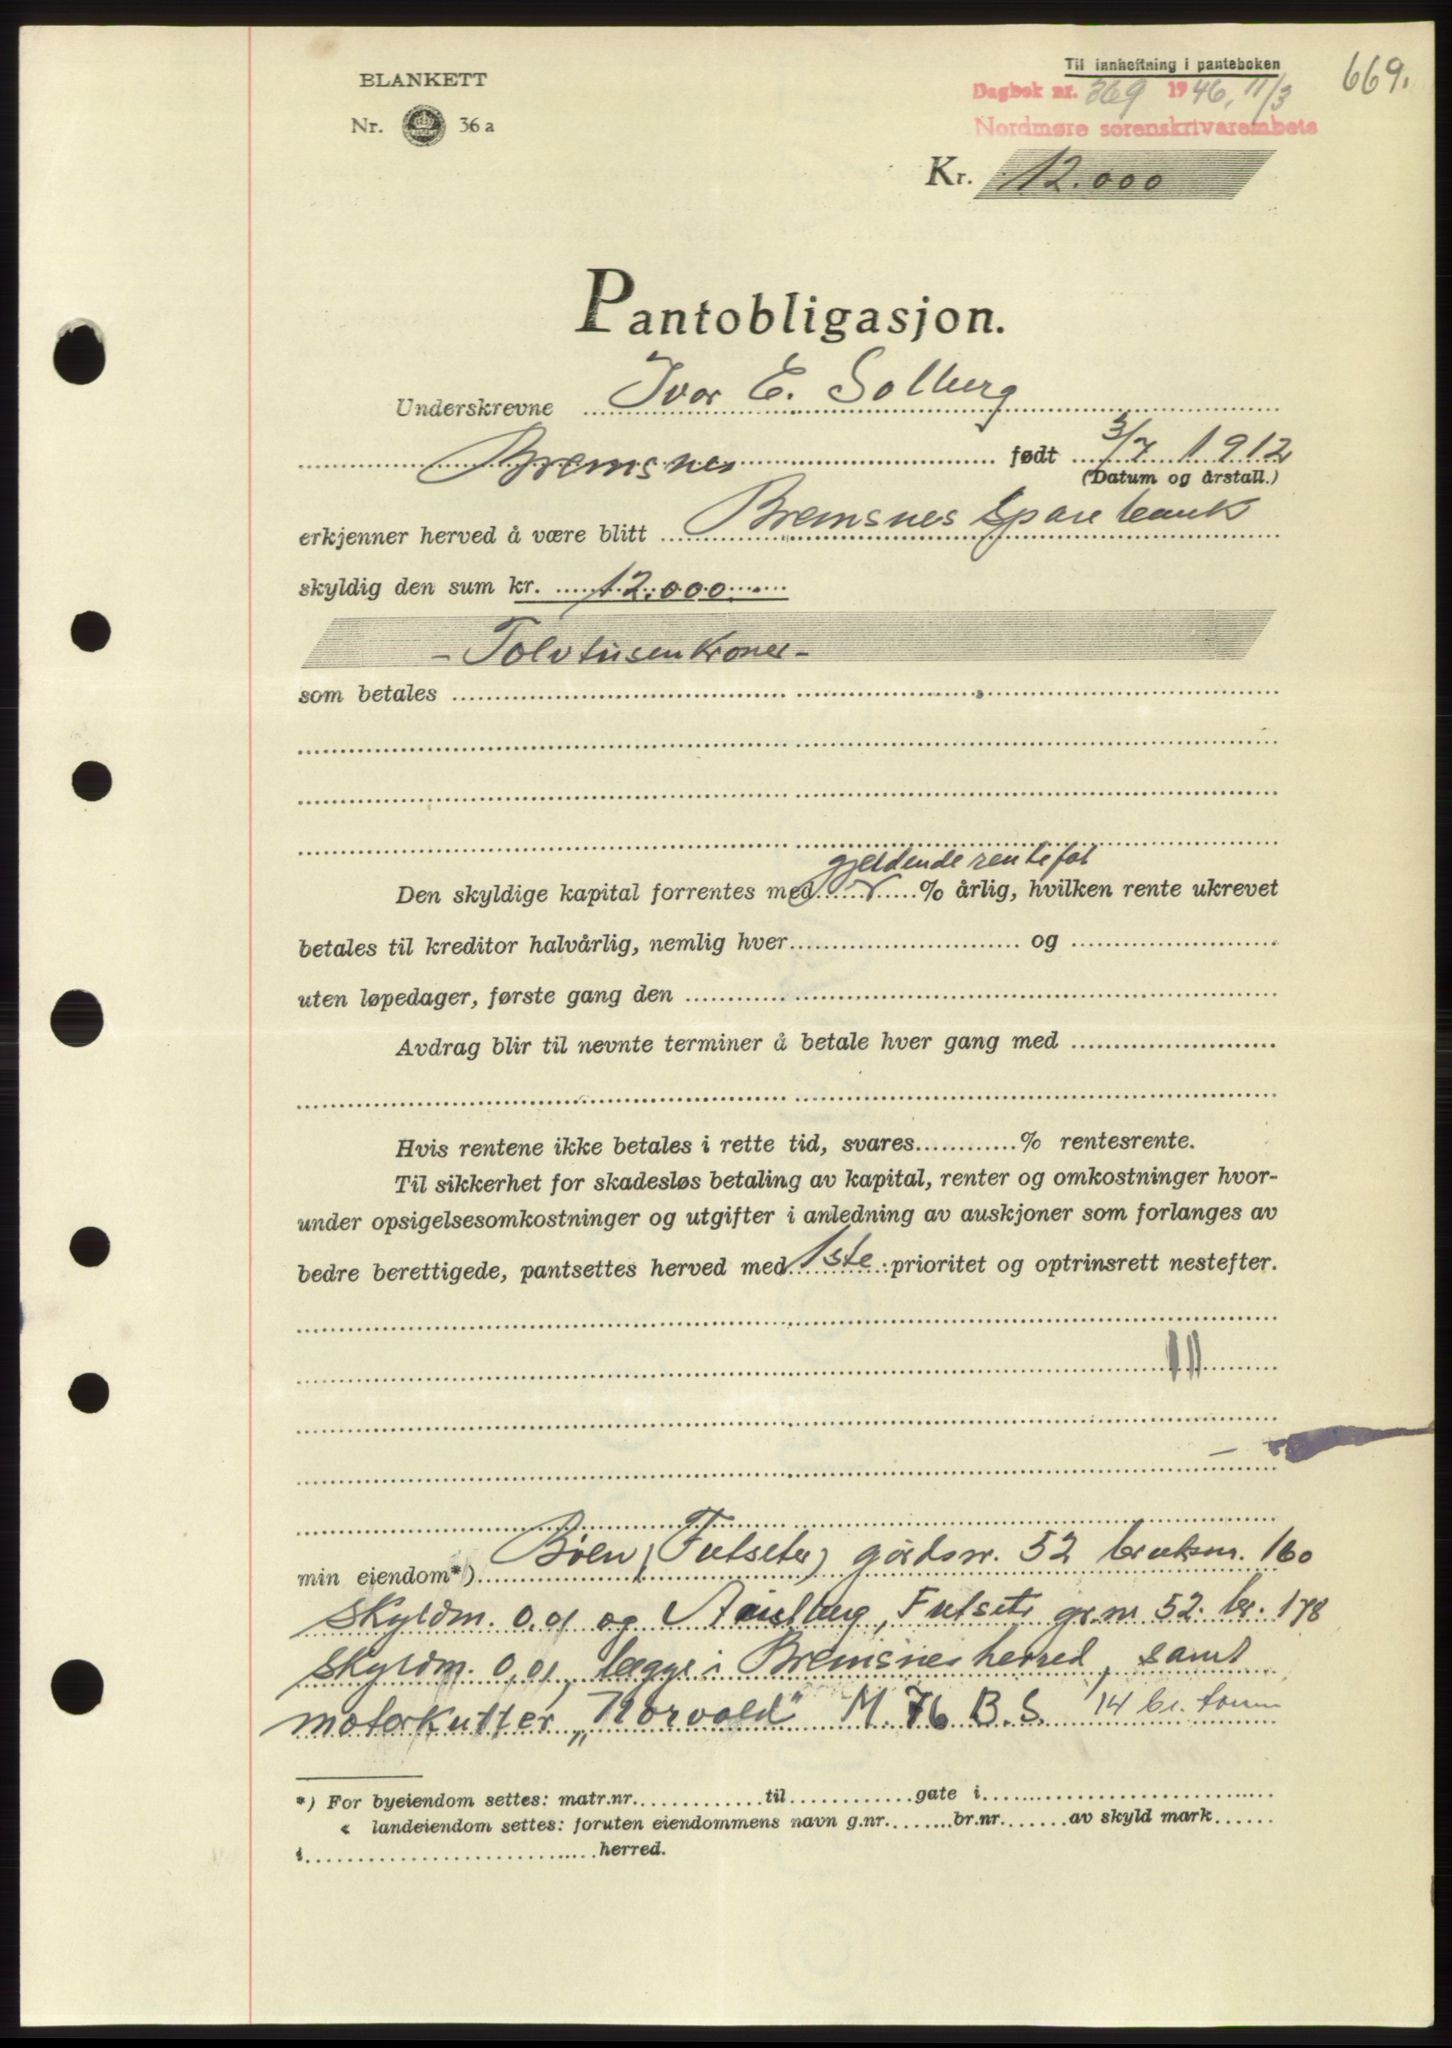 Til innheftning i panteboken
669.
BLANKETT
Dagbok nr. 369 1946, 11/3
Nr. 36 a
Nordmøre sorenskrivarembete
Kr. 12.000
Pantobligasjon.
Underskrevne Ivar E. Solberg
Bremsnes født 3/7 1912
(Datum og årstall.)
erkjenner herved å være blitt Bremsnes Sparebank
skyldig den sum kr. 12.000.-
- Tolvtusenkroner -
som betales
gjeldende rentefot
Den skyldige kapital forrentes med % årlig, hvilken rente ukrevet
betales til kreditor halvårlig, nemlig hver og
uten løpedager, første gang den
Avdrag blir til nevnte terminer å betale hver gang med
Hvis rentene ikke betales i rette tid, svares % rentesrente.
Til sikkerhet for skadesløs betaling av kapital, renter og omkostninger hvor-
under opsigelsesomkostninger og utgifter i anledning av auskjoner som forlanges av
bedre berettigede, pantsettes herved med 1ste prioritet og optrinsrett nestefter.
min eiendom*) Bøen, (Futseter) gårdsnr. 52 bruksnr. 160
skyldm. 0,01 og Futsete gr.nr 52. br. 178
skyldm. 0,01, begge i Bremsnes herred, samt
motorkutter „Norvald" M. 76 B.S. 14 br. tonn
*) For byeiendom settes: matr.nr. til gate i
« landeiendom settes: foruten eiendommens navn g.nr. br.nr. av skyld mark
i herred.